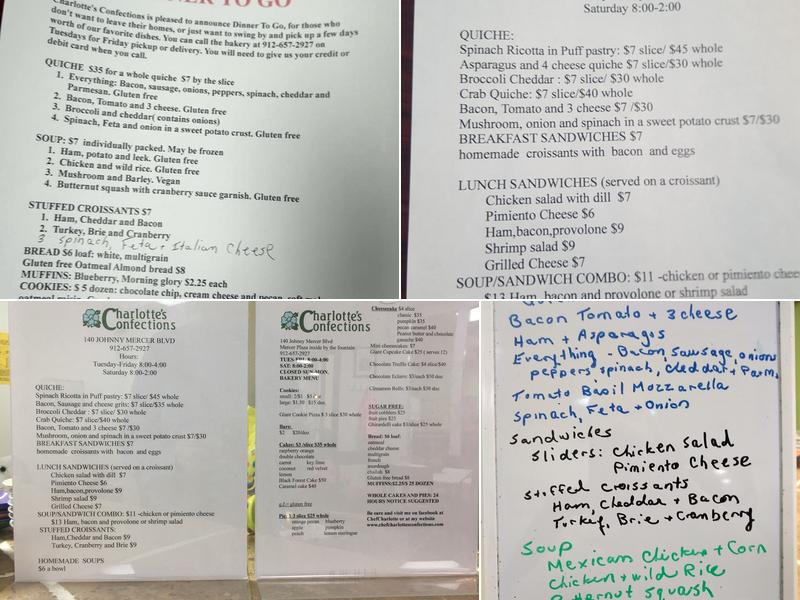 NNER TO GO
Charlotte's Confections is pleased to announce Dinner To Go, for those who
don't want to leave their homes, or just want to swing by and pick up a few days
worth of our favorite dishes. You can call the bakery at 912-657-2927 on
Tuesdays for Friday pickup or delivery. You will need to give us your credit or
debit card when you call.
QUICHE $35 for a whole quiche $7 by the slice
1. Everything: Bacon, sausage, onions, peppers, spinach, cheddar and
Parmesan. Gluten free
2. Bacon, Tomato and 3 cheese. Gluten free
3. Broccoli and cheddar( contains onions)
4. Spinach, Feta and onion in a sweet potato crust. Gluten free
SOUP: $7 individually packed. May be frozen
1. Ham, potato and leek. Gluten free
2. Chicken and wild rice. Gluten free
3. Mushroom and Barley. Vegan
4. Butternut squash with cranberry sauce garnish. Gluten free
STUFFED CROISSANTS $7
1. Ham, Cheddar and Bacon
2. Turkey, Brie and Cranberry
3 Spinach, Feta + Italian Cheese
BREAD $6 loaf: white, multigrain
Gluten free Oatmeal Almond bread $8
MUFFINS: Blueberry, Morning glory $2.25 each
COOKIES: $ 5 dozen: chocolate chip, cream cheese and pecan, soft
Saturday 8:00-2:00
QUICHE:
Spinach Ricotta in Puff pastry: $7 slice/ $45 whole
Asparagus and 4 cheese quiche $7 slice/$30 whole
Broccoli Cheddar : $7 slice/ $30 whole
Crab Quiche: $7 slice/$40 whole
Bacon, Tomato and 3 cheese $7 /$30
Mushroom, onion and spinach in a sweet potato crust $7/$30
BREAKFAST SANDWICHES $7
homemade croissants with bacon and eggs
LUNCH SANDWICHES (served on a croissant)
Chicken salad with dill $7
Pimiento Cheese $6
Ham,bacon,provolone $9
Shrimp salad $9
Grilled Cheese $7
SOUP/SANDWICH COMBO: $11 -chicken or pimiento chee
$13 Ham, bacon and provolone or shrimp salad
Charlotte's
Confections
140 JOHNNY MERCER BLVD
912-657-2927
Hours:
Tuesday-Friday 8:00-4:00
Saturday 8:00-2:00
QUICHE:
Spinach Ricotta in Puff pastry: $7 slice/ $45 whole
Bacon, Sausage and cheese grits: $7 slice/$35 whole
Broccoli Cheddar : $7 slice/ $30 whole
Crab Quiche: $7 slice/$40 whole
Bacon, Tomato and 3 cheese $7 /$30
Mushroom, onion and spinach in a sweet potato crust $7/$30
BREAKFAST SANDWICHES $7
homemade croissants with bacon and eggs
LUNCH SANDWICHES (served on a croissant)
Chicken salad with dill $7
Pimiento Cheese $6
Ham,bacon,provolone $9
Shrimp salad $9
Grilled Cheese $7
SOUP/SANDWICH COMBO: $11 -chicken or pimiento cheese
$13 Ham, bacon and provolone or shrimp salad
STUFFED CROISSANTS:
Ham,Cheddar and Bacon $9
Turkey, Cranberry and Brie $9
HOMEMADE SOUPS
$6 a bowl
Charlotte's
Confections
140 Johnny Mercer Blvd
Mercer Plaza inside by the fountain
912-657-2927
TUES-FRI. 8:00-4:00
SAT: 8:00-2:00
CLOSED SUN-MON.
BAKERY MENU
Cookies:
Giant Cookie Pizza $ 3 slice $30 whole
Bars:
$2 $20/doz
Cakes: $3 /slice $35 whole
raspberry orange
double chocolate
carrot key lime
coconut red velvet
lemon
Black Forest Cake $50
Caramel cake $40
g.f.= gluten free
Pies: 3 slice $25 whole
orange pecan blueberry
apple pumpkin
peach lemon meringue
Cheesecake $4 slice
classic $35
pumpkin $35
pecan caramel $40
Peanut butter and chocolate
ganache $40
Mini cheesecakes: $7
Giant Cupcake Cake $25 ( serves 12)
Chocolate Truffle Cake: $4 slice/$40
Chocolate Eclairs: $3/each $30 doz
Cinnamon Rolls: $3/each $30 doz
SUGAR FREE:
fruit cobblers $25
fruit pies $25
Ghirardelli cake $3/slice $25 whole
Bread: $6 loaf:
oatmeal
cheddar cheese
multigrain
french
sourdough
challah $8
Gluten free bread $8
MUFFINS:$2.25/$ 25 DOZEN
WHOLE CAKES AND PIES: 24
HOURS NOTICE SUGGESTED
Be sure and visit me on facebook at
ChefCharlotte or at my website
www.chefcharlottesconfections.com
Bacon Tomato + 3 cheese
Ham + Asparagus
Everything - Bacon, sausage, onions
peppers, spinach, cheddar + Parm.
Tomato Basil Mozzarella
Spinach, Feta + Onion
Sandwiches
Sliders: Chicken Salad
Pimiento Cheese
Stuffed Croissants
Ham, Cheddar + Bacon
Turkey, Brie + Cranberry
Soup
Mexican Chicken + Corn
Chicken + wild Rice
Butternut squash